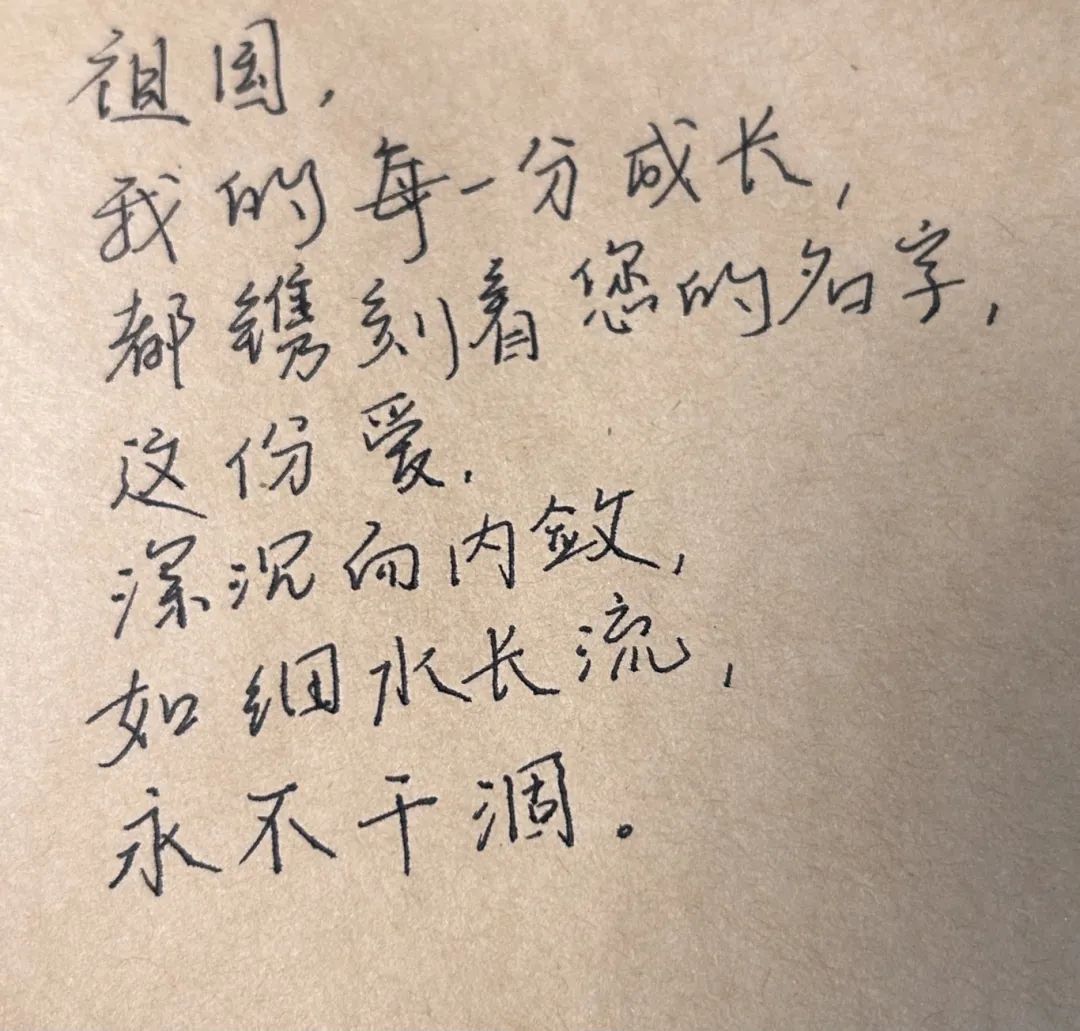 祖国,
我的每一分成长,
都镌刻着您的名字,
这份爱,
深沉而内敛,
如细水长流,
永不干涸。